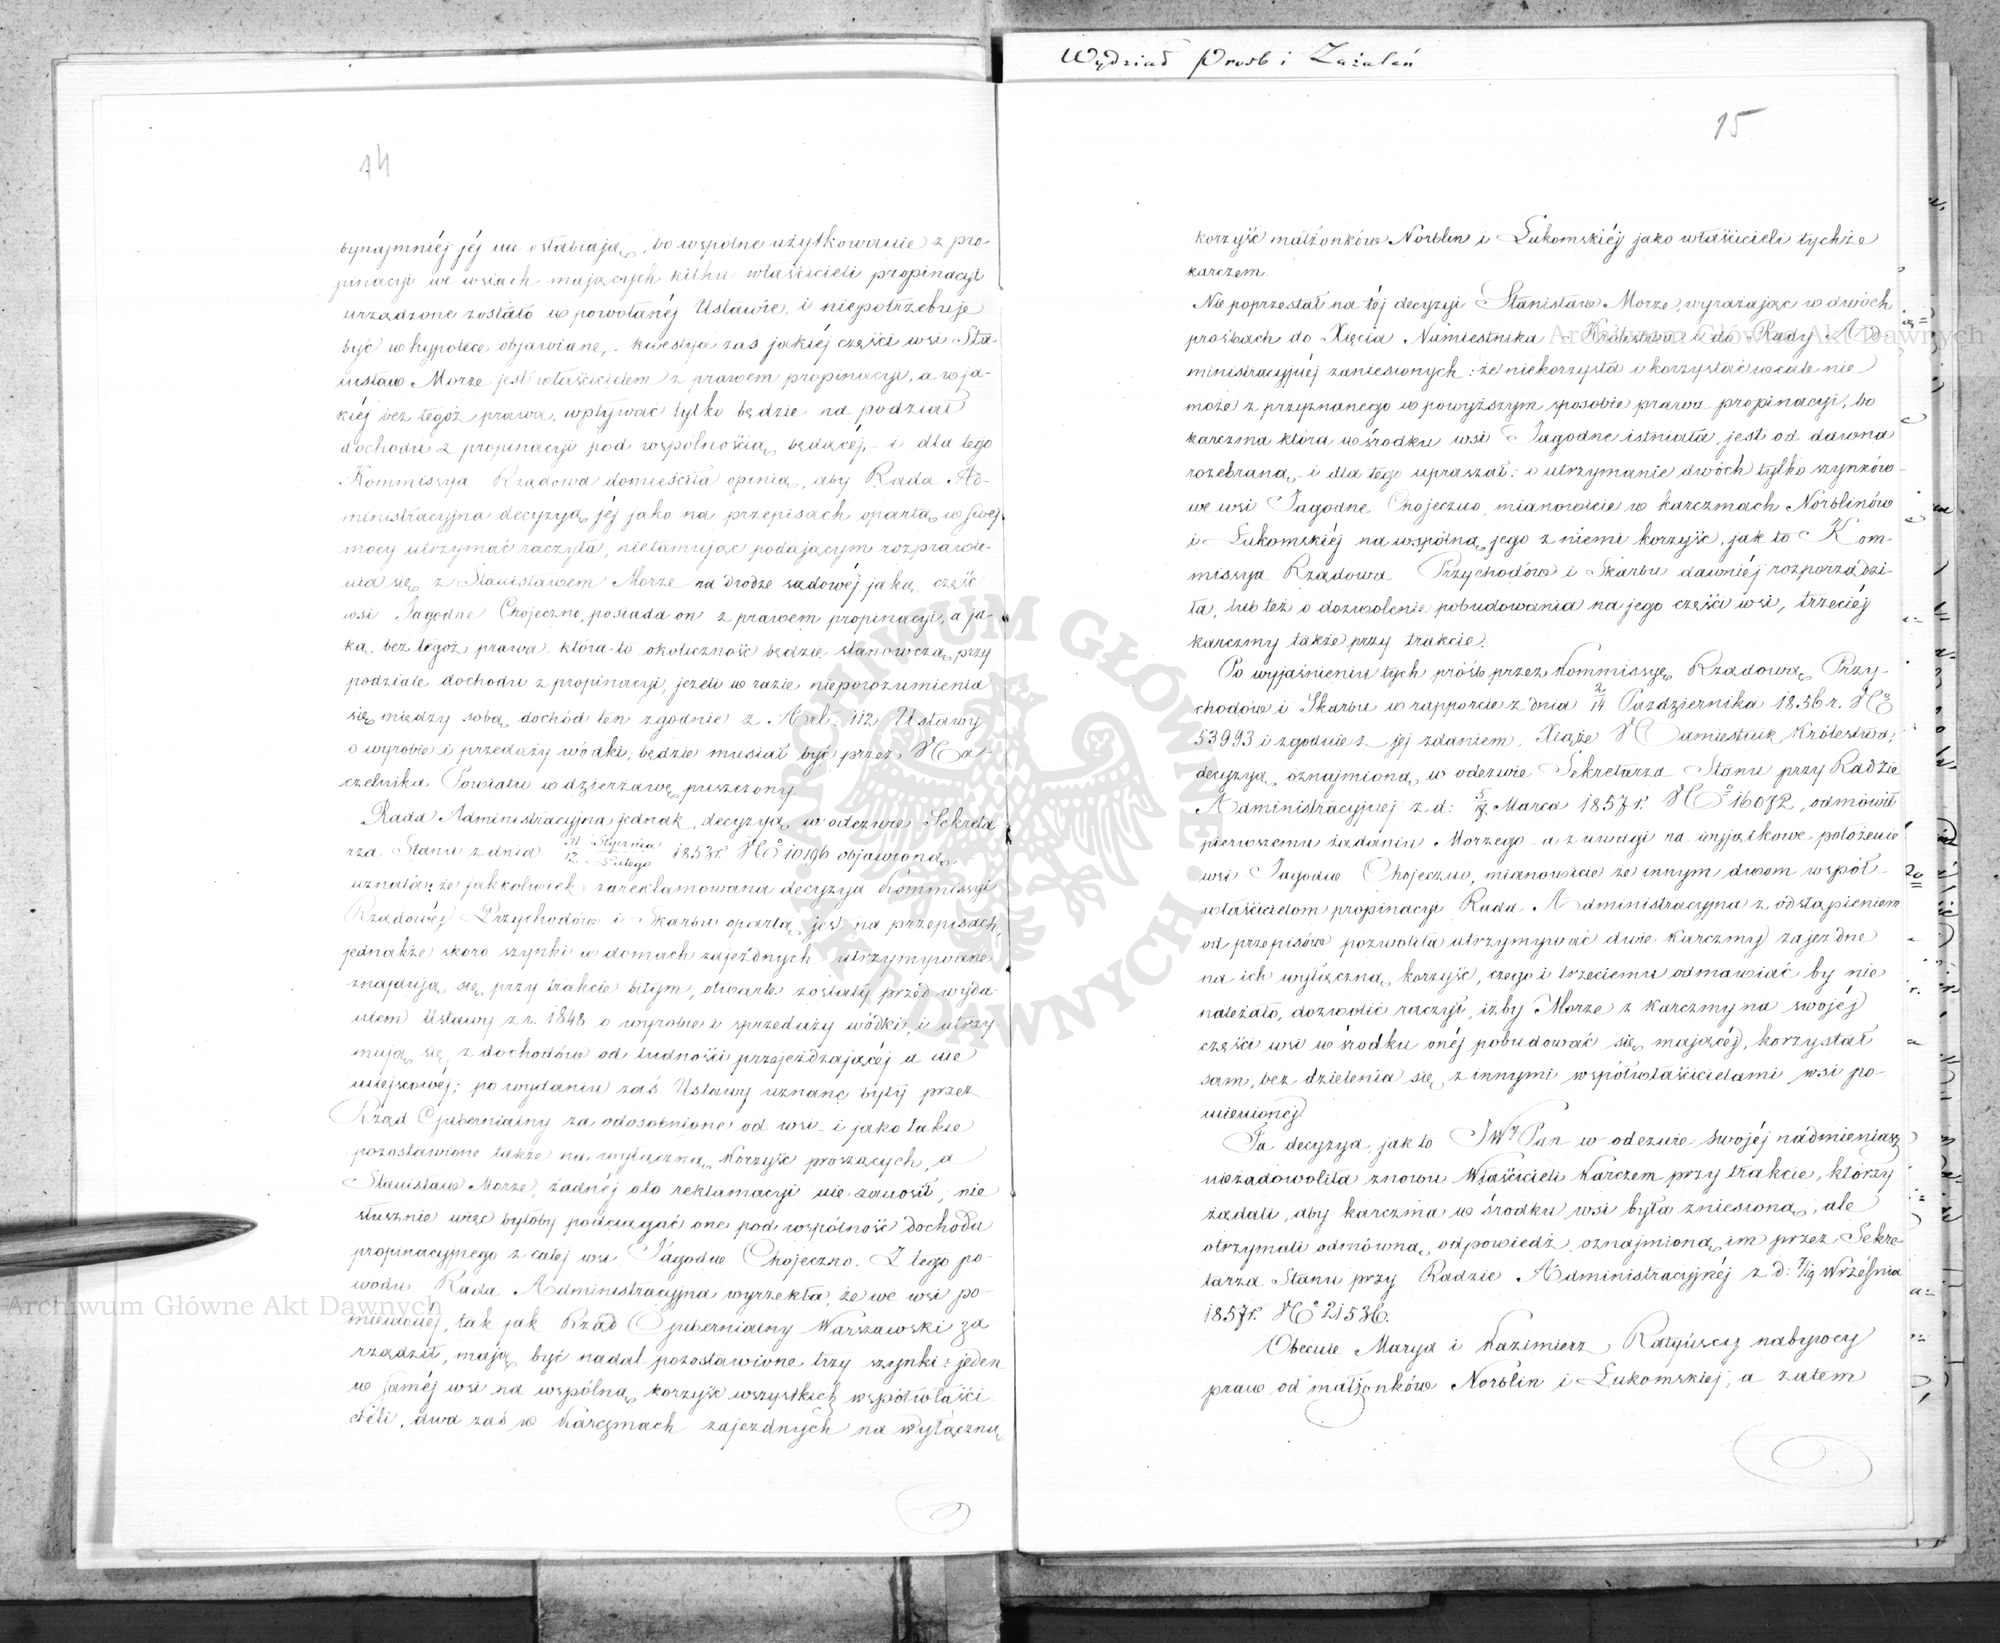 14
bynajmniéj jéj nie osłabiają, bo wspólne użytkowanie z pro-
pinacyi we wsiach mających kilku właścicieli propinacyi
urządzone zostało w powołanéj Ustawie, i niepotrzebuje
być w hypotece objawiane,- kwestya zaś jakiéj części wsi Sta-
nisław Morze jest właścicielem z prawem propinacyi, a w ja-
kiéj bez tegoż prawa, wpływać tylko będzie na podział
dochodu z propinacyi pod wspólnością będącéj,- i dla tego
Kommissya Rządowa domieściła opinią, aby Rada Ad-
ministracyjna decyzyą jéj jako na przepisach opartą w swéj
mocy utrzymać raczyła, nietamując podającym rozprawie-
nia się z Stanisławem Morze na drodze sądowéj jaką część
wsi Jagodne Chojeczne, posiada on z prawem propinacyi, a ja-
ką bez tegoż prawa która-to okoliczność będzie stanowczą przy
podziale dochodu z propinacyi, jeżeli w razie nieporozumienia
się między sobą dochód ten zgodnie z Art: 112 Ustawy
o wyrobie i przedaży wódki, będzie musiał być przez Na-
czelnika Powiatu w dzierżawę puszczony.
Rada Administracyjna jednak, decyzyą w odezwie Sekreta
rza Stanu z dnia 31 Stycznia / 12 Lutego 1853r. No 10196 objawioną
uznała: że jakkolwiek zareklamowana decyzya Kommissyi
Rządowéj Przychodów i Skarbu opartą jest na przepisach,
jednakże skoro szynki w domach zajezdnych utrzymywane
znajdują się przy trakcie bitym, otwarte zostały przed wyda-
niem Ustawy z r. 1848 o wyrobie i sprzedaży wódki, i utrzy-
mują się z dochodów od ludności przejeżdzającéj a nie
miejscowéj; po wydaniu zaś Ustawy uznane były przez
Rząd Gubernialny za odosobnione od wsi i jako takie
pozostawione także na wyłączną korzyść proszących, a
Stanisław Morze, żadnéj oto reklamacyi nie zanosił, nie
słusznie więc byłoby podciągać one pod wspólność dochodu
propinacyjnego z całej wsi Jagodne Chojeczno. Z tego po-
wodu Rada Administracyjna wyrzekła, że we wsi po-
mienionéj, tak jak Rząd Gubernialny Warszawski za
rządził, mają być nadal pozostawione trzy szynki: jeden
w saméj wsi na wspólną korzyść wszystkich współwłaści
cieli, dwa zaś w karczmach zajezdnych na wyłączną
Wydział Prośb i Zażaleń
15
korzyść małżonków Norblin i Łukomskiéj jako właścicieli tychże
karczem.
Nie poprzestał na téj decyzyi Stanisław Morze, wyrażając w dwóch
prośbach do Xięcia Namiestnika Królestwa i do Rady Ad-
ministracyjnéj zaniesionych: że niekorzysta i korzystać wcale nie
może z przyznanego w powyższym sposobie prawa propinacyi, bo
karczma która w środku wsi Jagodne istniała, jest od dawna
rozebraną,- i dla tego upraszał: o utrzymanie dwóch tylko szynków
we wsi Jagodne Chojeczno, mianowicie w karczmach Norblinów
i Łukomskiéj na wspólną jego z niemi korzyść, jak to Kom-
missya Rządowa Przychodów i Skarbu dawniéj rozporządzi-
ła, lub też o dozwolenie pobudowania na jego części wsi, trzeciéj
karczmy także przy trakcie.
Po wyjaśnieniu tych próśb przez Kommissyę Rządową Przy-
chodów i Skarbu w rapporcie z dnia 2/14 Października 1856r. No
53993 i zgodnie z jéj zdaniem, Xiąże Namiestnik Królestwa,
decyzyą, oznajmioną w odezwie Sekretarza Stanu przy Radzie
Administracyjnej z d: Marca 1857r. No 16072, odmówił
pierwszemu żądaniu Morzego a z uwagi na wyjątkowe położenie
wsi Jagodne Chojeczno, mianowicie że innym dwom współ-
właścicielom propinacyi Rada Administracyjna z odstąpieniem
od przepisów pozwoliła utrzymywać dwie karczmy zajezdne
na ich wyłączną korzyść, czego i trzeciemu odmawiać by nie
należało, dozwolić raczył, iżby Morze z karczmy na swojéj
części wsi w środku onéj pobudować się mającéj, korzystał
sam, bez dzielenia się z innymi współwłaścicielami wsi po-
mienionéj.
Ta decyzya, jak to JWy Pan w odezwie swojéj nadmieniasz
niezadowoliła znowu Właścicieli karczem przy trakcie, którzy
żądali, aby karczma w środku wsi była zniesioną, ale
otrzymali odmówną odpowiedź oznajmioną im przez Sekre-
tarza Stanu przy Radzie Administracyjnéj z d: 7/19 Września
1857r. No 21536.
Obecnie Marya i Kazimierz nabywcy
praw od małżonków Norblin i Łukomskiej, a zatem
Archiwum Główne Akt Dawnych
Archiwum Główne Akt Dawnych
ARCHIWUM GŁÓWNE AKT DAWNYCH